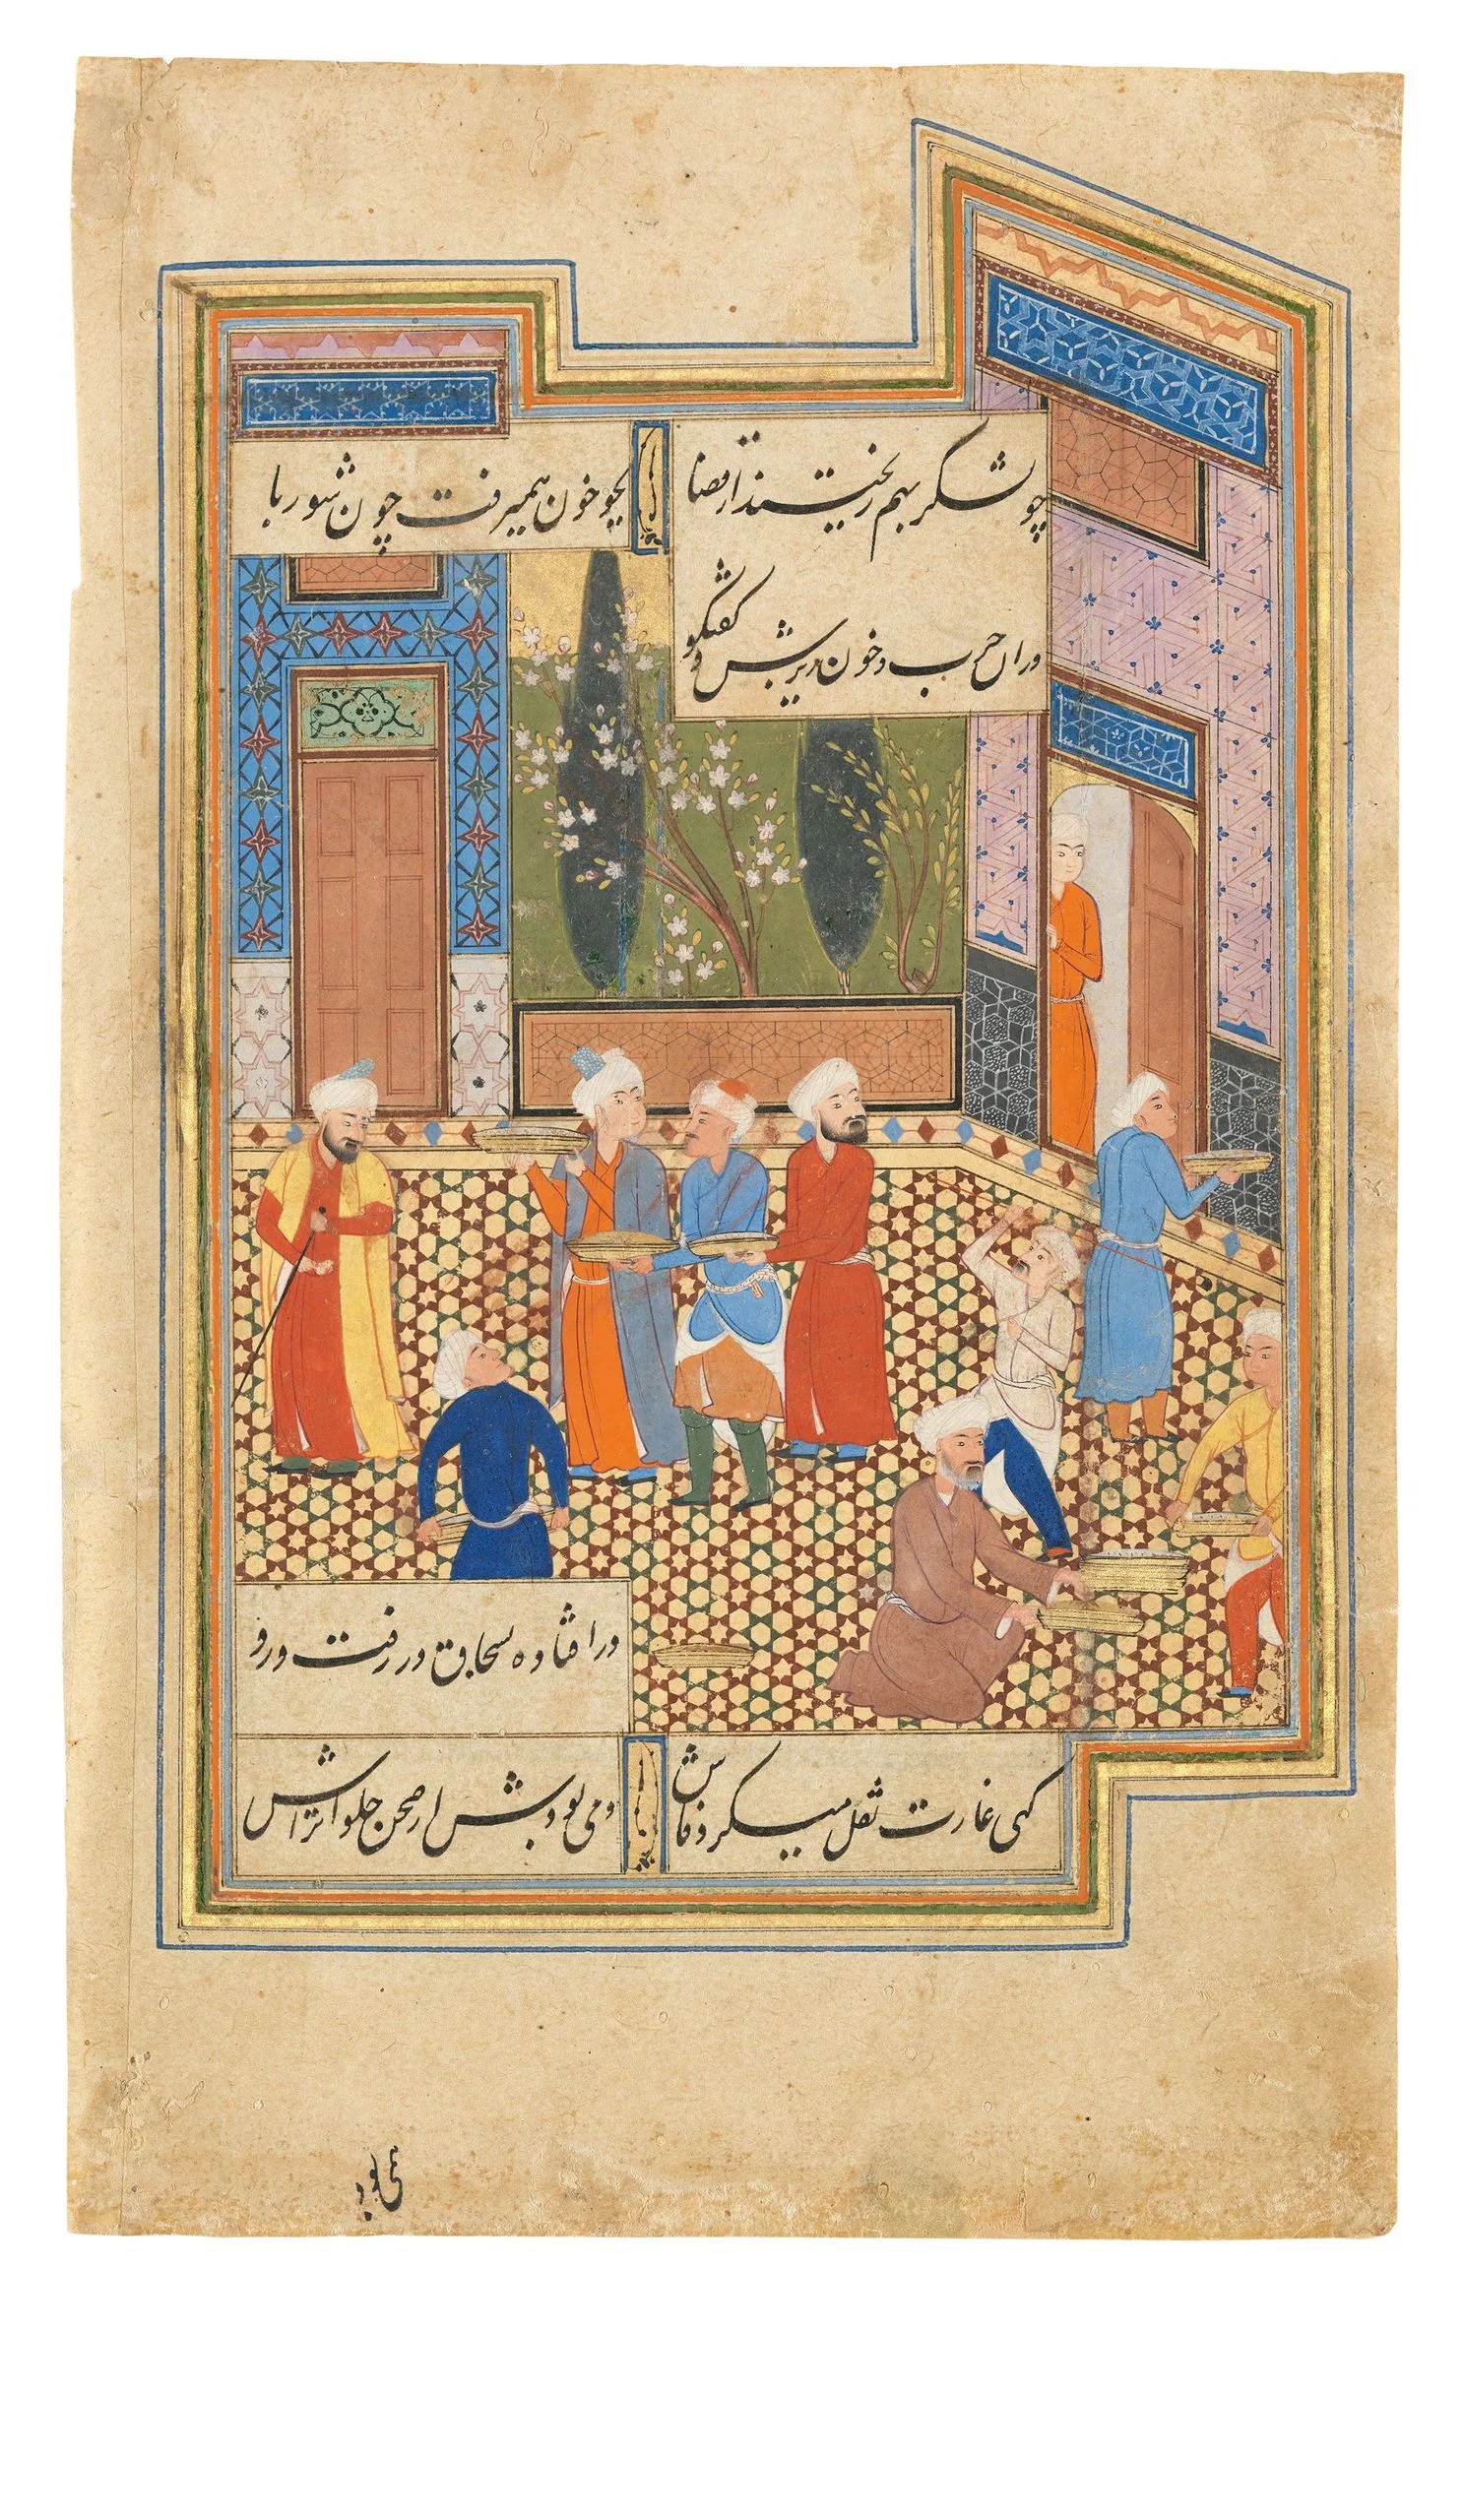 چو لشکر بهم ریختند از قضا
بجو خون همیرفت چون شوربا
در ان حرب و خون ریزش و گفتگو
در افتاده بسحاق در رفت و رو
گهی غارت نقل میکرد فاش
دمی بودش از صحن حلوا تراش